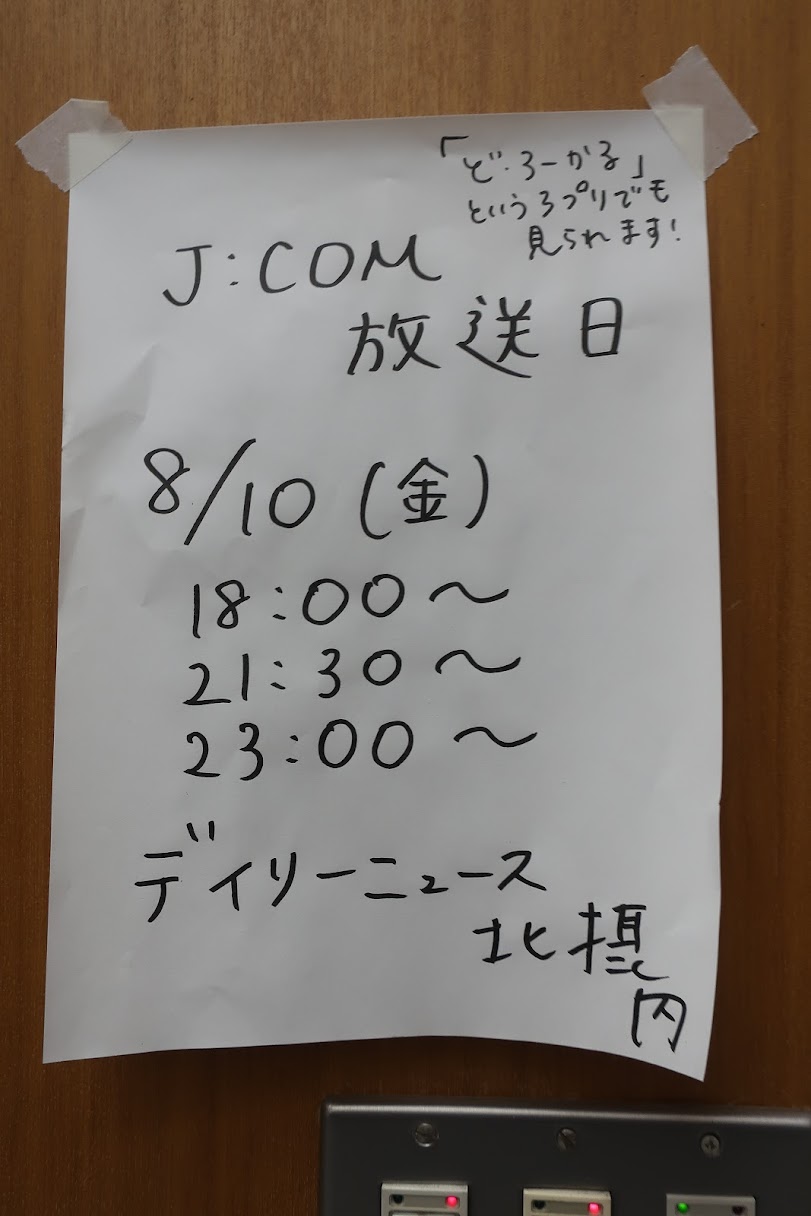 「ど・ろーかる」
というアプリでも
見られます!
J:COM
放送日
8/10(金)
18:00〜
21:30〜
23:00〜
デイリーニュース
北摂
内